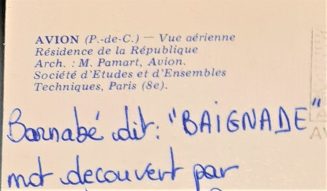 AVION (P.-de-C.) — Vue aérienne
Résidence de la République
Arch. : M. Pamart, Avion.
Société d'Etudes et d'Ensembles
Techniques, Paris (8e).
Barnabé dit: "BAIGNADE"
mot decouvert par